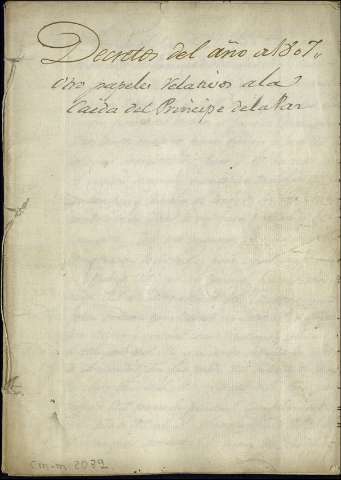 Decretos del año de 1807,,
Otro papeles relativos a la
Caida del Principe de la Paz
cm-m 2092